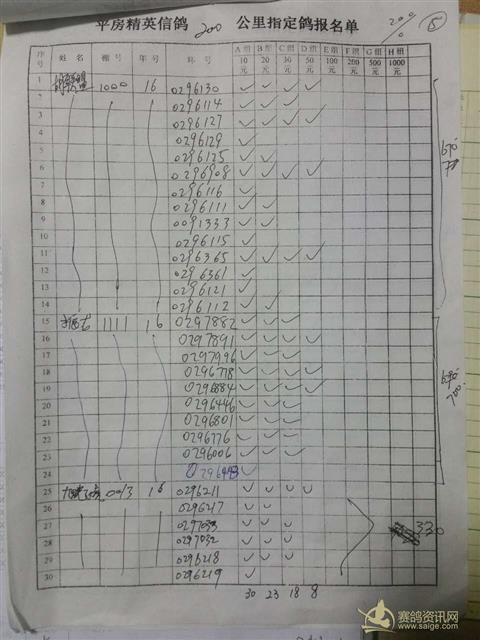 平房精英信鸽 200 公里指定鸽报名单
200 ⑤
序号 姓名 棚号 年号 环号 A组10元 B组20元 C组30元 D组50元 E组100元 F组200元 G组500元 H组1000元
1 1000 16 0296130 ✓ ✓ ✓ ✓
2 0296114 ✓ ✓ ✓
3 0296127 ✓ ✓ ✓ ✓
4 0296129 ✓
5 0296125 ✓ ✓
6 0296908 ✓ ✓ ✓ ✓
7 0296116 ✓
8 0296111 ✓ ✓
9 0091333 ✓ ✓
10 0296115 ✓
11 0296365 ✓ ✓ ✓ ✓
12 0296361 ✓
13 0296121 ✓
14 0296112 ✓ ✓
15 1111 16 0297882 ✓ ✓ ✓
16 0297891 ✓ ✓ ✓ ✓
17 0297996 ✓ ✓ ✓
18 0296778 ✓ ✓ ✓ ✓
19 0296884 ✓ ✓ ✓ ✓
20 0296446 ✓ ✓ ✓
21 0296801 ✓ ✓ ✓
22 0296776 ✓ ✓ ✓
23 0296006 ✓ ✓ ✓
24 ✓
25 0013 16 0296211 ✓ ✓ ✓ ✓
26 0296217 ✓ ✓
27 0297033 ✓ ✓ ✓
28 0297032 ✓ ✓ ✓
29 0296218 ✓ ✓ ✓
30 0296219 ✓
670
690
700
330
30 23 18 8
赛鸽资讯网
www.saige.com